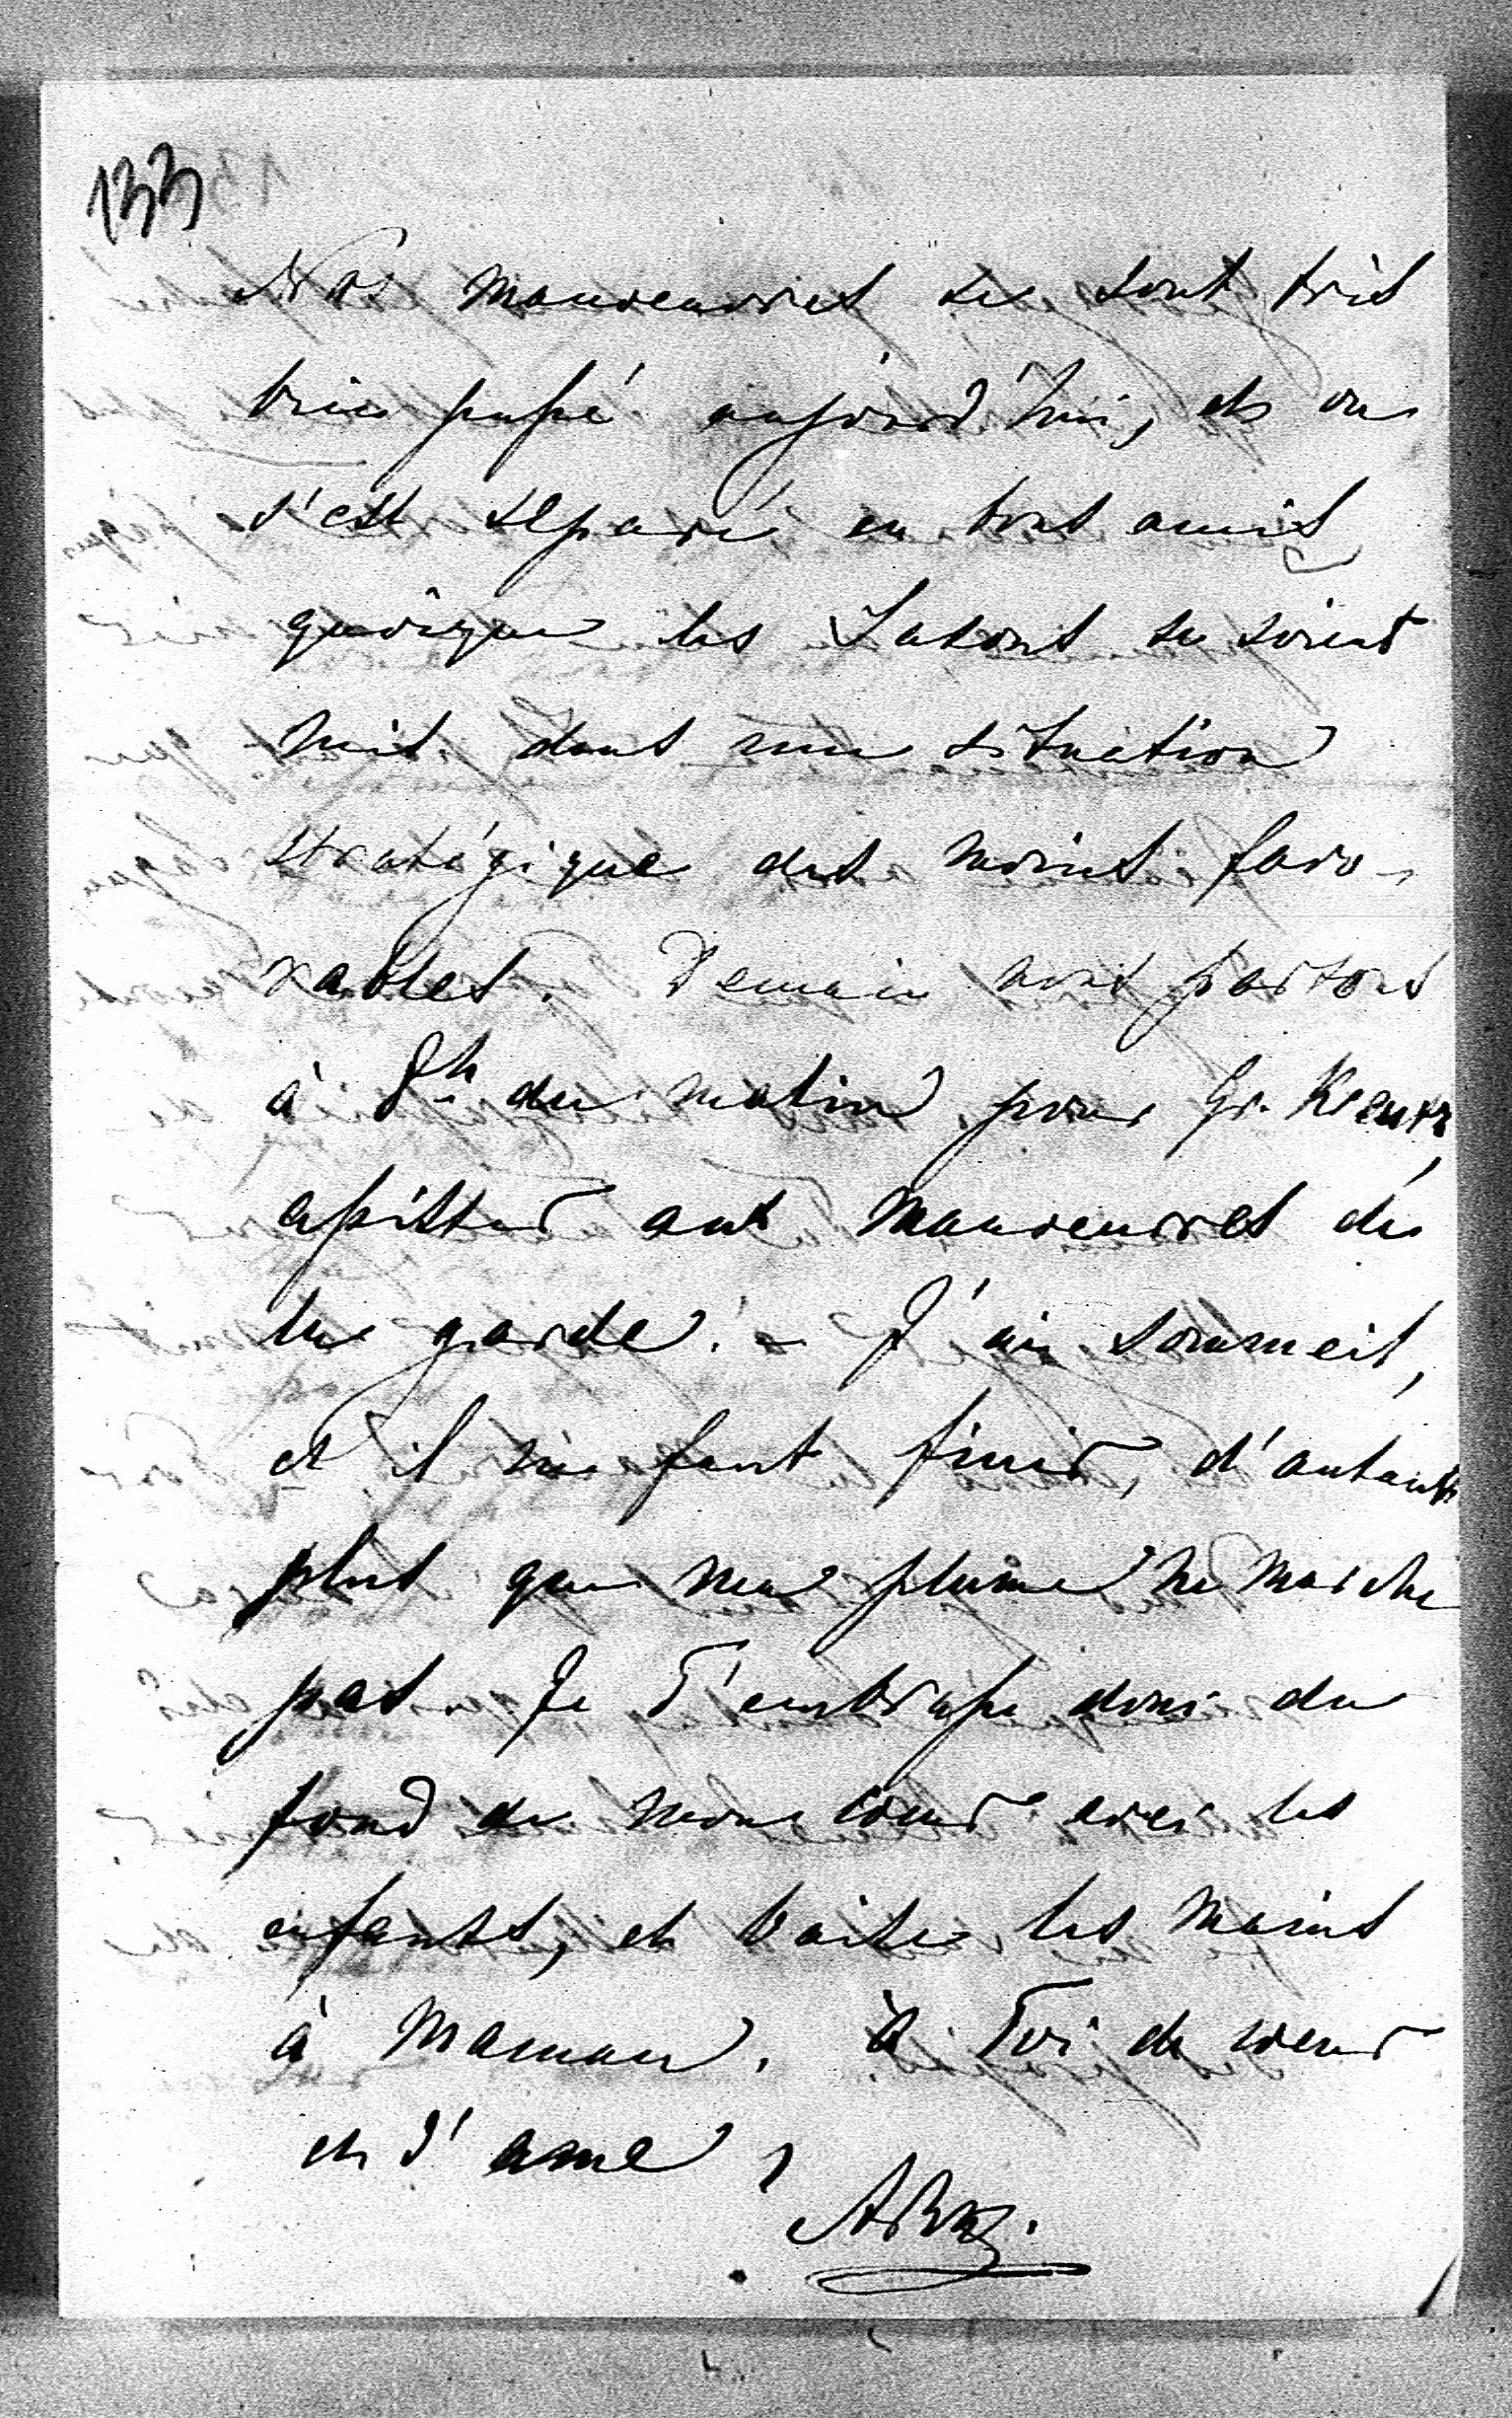 133
Nos manoeuvres se sont très
bien passé aujourd'hui, et on
s'est séparé en bons amis,
quoique les Saxons se soient
mis dans une situation
stratégique des moins favo-
rables. Demain nous partons
à 8h du matin pour Gr. Kreutz,
assister aux manoeuvres de
la garde. – J'ai sommeil,
et il me faut finir, d'autant
plus que ma plume ne marche
pas. Je T'embrasse donc du
fond de mon coeur avec les
enfants, et baise les mains
à Maman. à Toi de coeur
et d'ame,